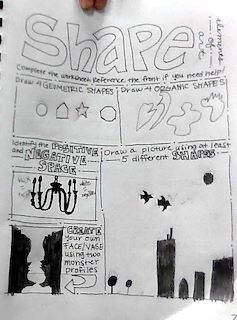 Shape
elements of art
Complete the worksheet. Reference the front if you need help!
Draw 4 GEOMETRIC SHAPES
Draw 4 ORGANIC SHAPES
Identify the POSITIVE
and
NEGATIVE
SPACE
Draw a picture using at least
5 different SHAPES
CREATE
your own
FACE/VASE
using two
monster
profiles
7